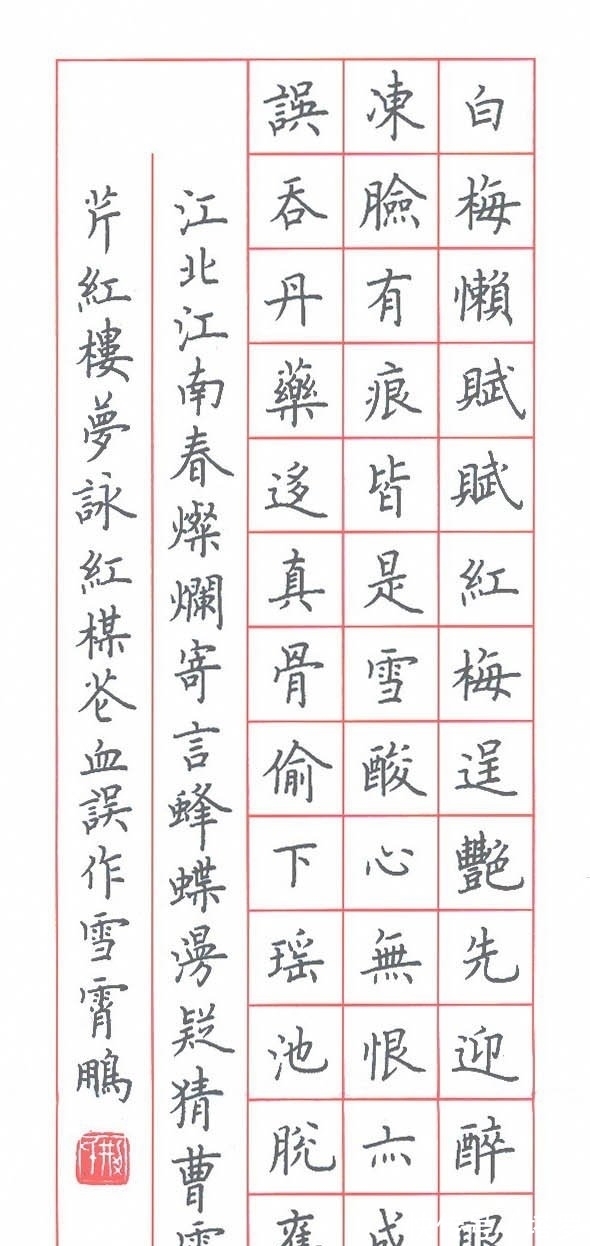 白梅懶賦賦紅梅逞艷先迎醉眼
凍臉有痕皆是雪酸心無恨亦成
誤吞丹藥迻真骨偷下瑶池脫舊
江北江南春燦爛寄言蜂蝶漫疑猜曹雪
芹紅樓夢詠紅楳花血誤作雪霄鵬